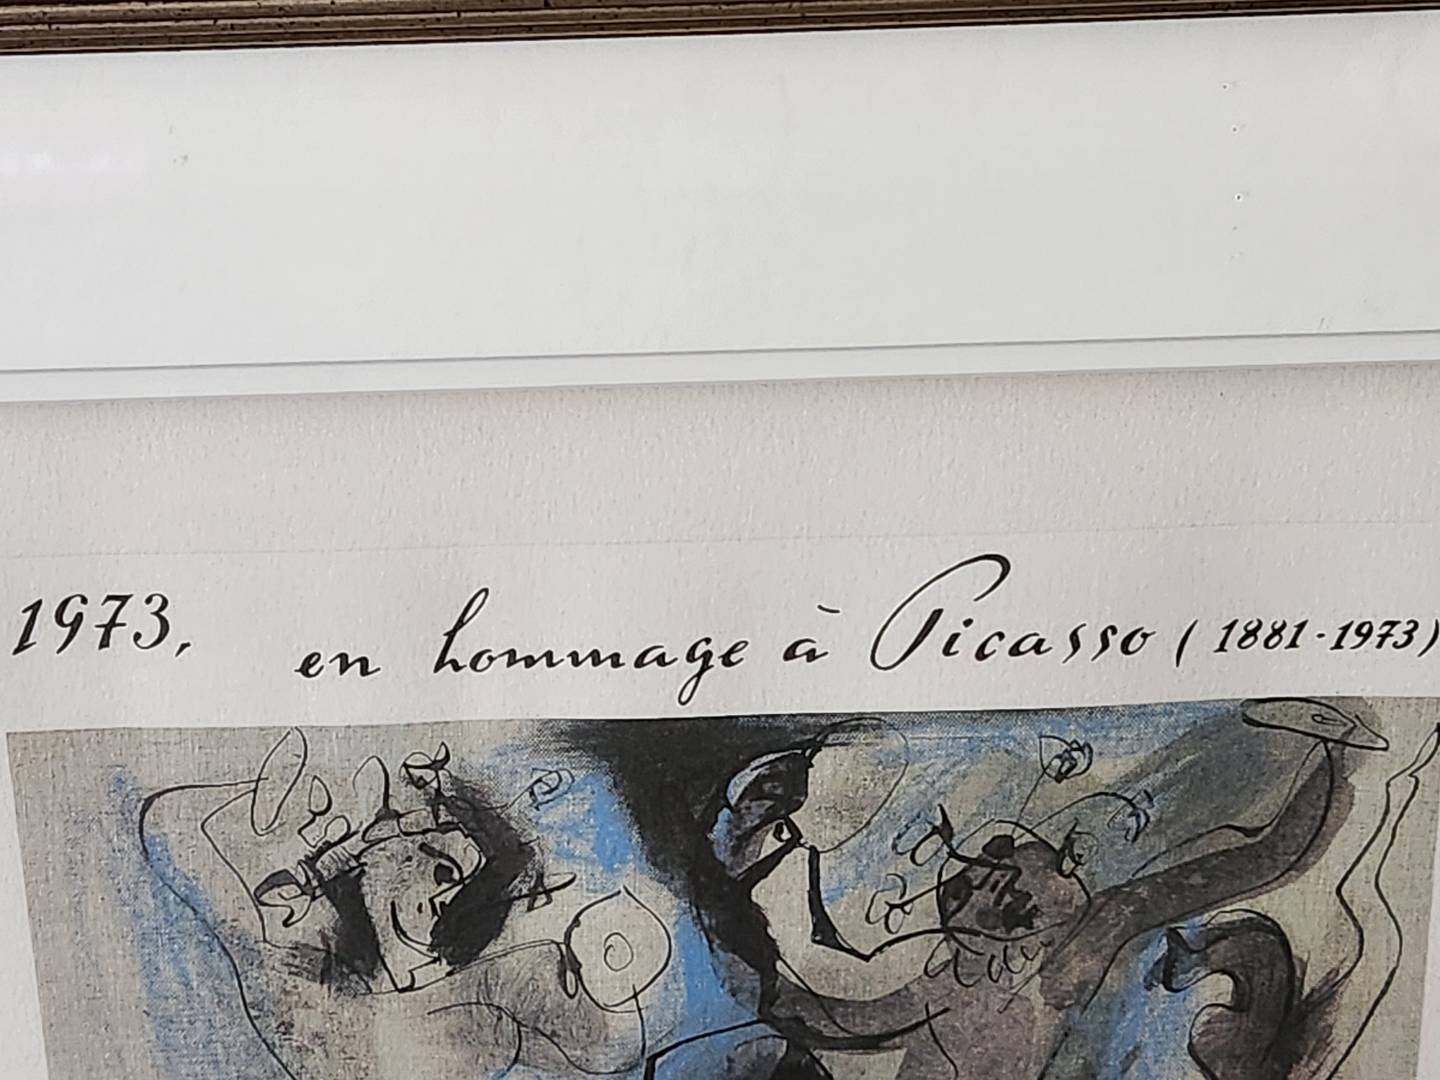 1973, en hommage à Picasso (1881-1973)